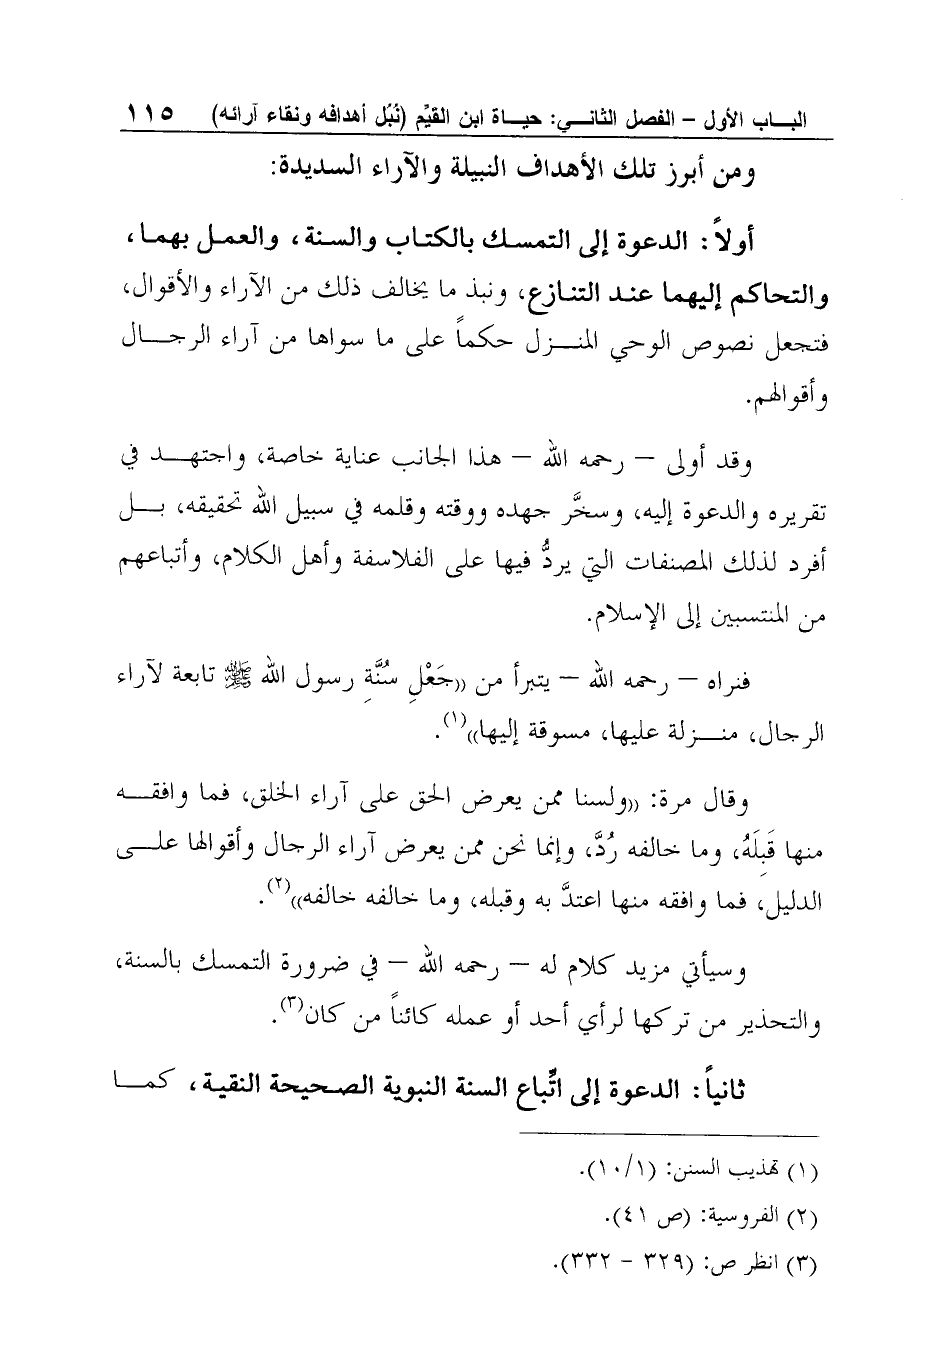 الباب الأول – الفصل الثاني: حياة ابن القيِّم (نُبْل أهدافه ونقاء آرائه) ١١٥
ومن أبرز تلك الأهداف النبيلة والآراء السديدة:
أولاً: الدعوة إلى التمسك بالكتاب والسنة، والعمل بهما،
والتحاكم إليهما عند التنازع، ونبذ ما يخالف ذلك من الآراء والأقوال،
فتجعل نصوص الوحي المنزل حكماً على ما سواها من آراء الرجال
وأقوالهم.
وقد أولى – رحمه الله – هذا الجانب عناية خاصة، واجتهد في
تقريره والدعوة إليه، وسخَّر جهده ووقته وقلمه في سبيل الله تحقيقه، بل
أفرد لذلك المصنفات التي يردُّ فيها على الفلاسفة وأهل الكلام، وأتباعهم
من المنتسبين إلى الإسلام.
فنراه – رحمه الله – يتبرأ من ((جَعْلِ سُنَّةِ رسول الله ﷺ تابعة لآراء
الرجال، منزلة عليها، مسوقة إليها))(١).
وقال مرة: ((ولسنا ممن يعرض الحق على آراء الخلق، فما وافقه
منها قَبِلَهُ، وما خالفه رُدَّ، وإنما نحن ممن يعرض آراء الرجال وأقوالها على
الدليل، فما وافقه منها اعتدَّ به وقبله، وما خالفه خالفه))(٢).
وسيأتي مزيد كلام له – رحمه الله – في ضرورة التمسك بالسنة،
والتحذير من تركها لرأي أحد أو عمله كائناً من كان(٣).
ثانياً: الدعوة إلى اتِّباع السنة النبوية الصحيحة النقية، كما
(١) تهذيب السنن: (١٠/١).
(٢) الفروسية: (ص ٤١).
(٣) انظر ص: (٣٢٩ – ٣٣٢).